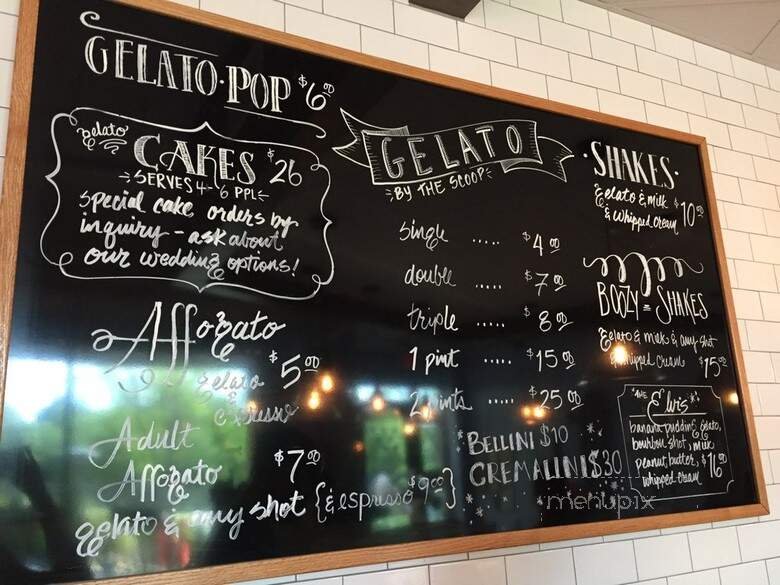 GELATO·POP $6.00
gelato
CAKES $26
SERVES 4-6 PPL
special cake orders by
inquiry - ask about
our wedding options!
Affogato
$5.00
gelato
& espresso
Adult
Affogato
$7.00
gelato & any shot {& espresso $9.00}
GELATO
BY THE SCOOP
single ..... $4.00
double ..... $7.00
triple ..... $8.00
1 pint ..... $15.00
2 pints ..... $25.00
BELLINI $10
CREMALINI $30
·SHAKES·
gelato & milk
& whipped cream $10.00
BOOZY = SHAKES
gelato & milk & any shot
& whipped cream $15.00
"THE
Elvis"
banana pudding gelato,
bourbon shot, milk
peanut butter, $16.00
whipped cream
menupix